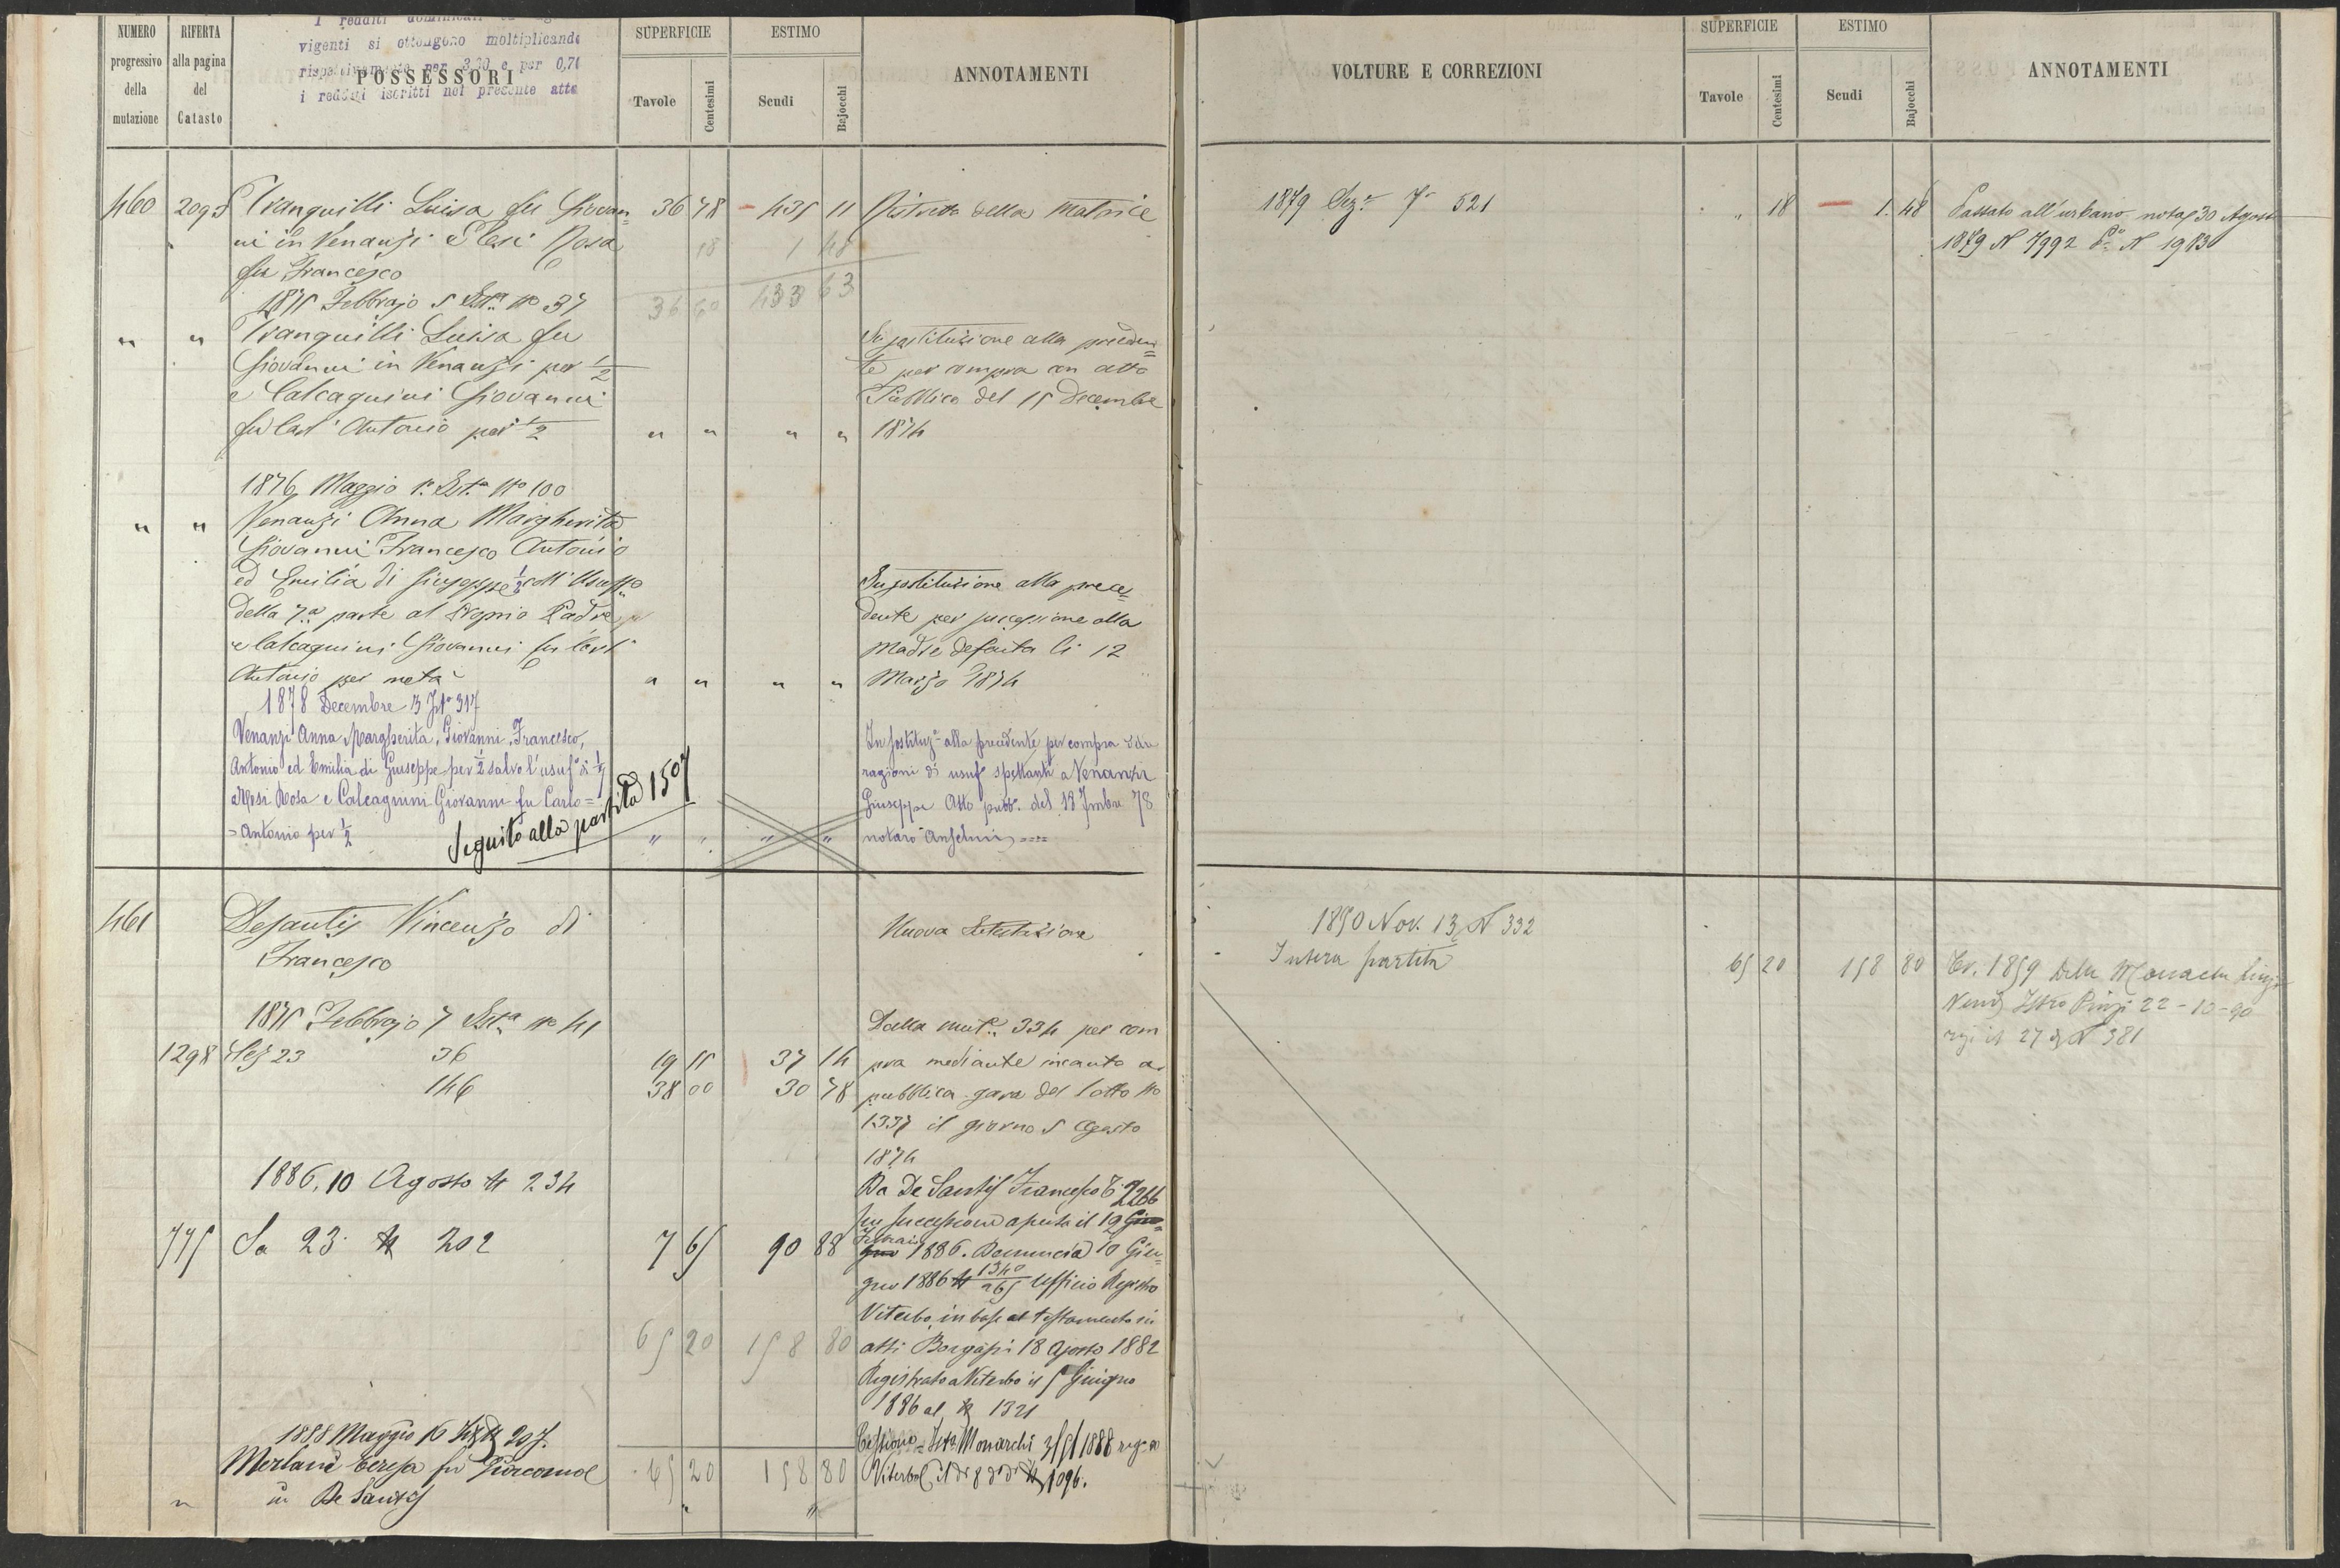 NUMERO progressivo della mutazione
RIFERTA alla pagina del Catasto
vigenti si ottengono moltiplicando
rispettivamente per 3,30 e per 0,70
i redditi iscritti nel presente atto
POSSESSORI
SUPERFICIE
Tavole Centesimi
ESTIMO
Scudi Bajocchi
ANNOTAMENTI
460 2095 Tranquilli Luisa fu Giovan= 36 78 - 435 11 Ristretto della Matrice
ni in Venanzi e Mesi Rosa 18 1 48
fu Francesco
36 60 433 63
1875 Febbrajo 5 Ist.a No 37
" " Tranquilli Luisa fu
Giovanni in Venanzi per 1/2
e Calcagnini Giovanni
fu Carl' Antonio per 1/2 " " " "
In sostituzione alla preceden=
te per compra con atto
Pubblico del 15 Decembre
1874
1876 Maggio 1° Ist.a No 100
" " Venanzi Anna Margherita
Giovanni Francesco Antonio
ed Emilia di Giuseppe 1/2 coll'Usuf.o
della 7.a parte al proprio Padre
e Calcagnini Giovanni fu Carl'
Antonio per metà " " " "
In sostituzione alla prece=
dente per successione alla
Madre defunta li 12
Marzo 1874
1878 Decembre 3 No 317
Venanzi Anna Margherita, Giovanni, Francesco,
Antonio ed Emilia di Giuseppe per 1/2 salvo l'usuf.o di 1/7
a Mesi Rosa e Calcagnini Giovanni fu Carlo=
=Antonio per 1/2 " " " "
Seguito alla partita 1507
In sostituz.e alla precedente per compra
ragioni di usuf. spettanti a Venanzi
Giuseppe Atto pubb.o del 18 7mbre 78
notaro Anselmi
461 Desantis Vincenzo di
Francesco
Nuova Intestazione
1875 Febbrajo 7 Ist.a No 41
1298 Sez 23 36 19 55 37 14
146 38 00 30 78
Dalla mut.e 334 per com
pra mediante incanto a
pubblica gara del lotto No
1337 il giorno 5 Agosto
1874
1886, 10 Agosto N 234
775 Sa 23 N 202 7 65 90 88
65 20 158 80
Da De Santis Francesco
per successione aperta il 19 Giu=
Febraio
gno 1886. Denuncia 10 Giu=
gno 1886 N 1340/265 Ufficio Registro
Viterbo, in base al testamento in
atti Borgassi 18 Agosto 1882
Registrato a Viterbo il 5 Giugno
1886 al N 1321
1888 Maggio 16 N 207.
Merlani Teresa fu Giacomo
" in De Santis
65 20 158 80
" "
Cessione Monarchi 3/5/1888 reg. a
Viterbo il dì 8 N 1096.
VOLTURE E CORREZIONI
SUPERFICIE
Tavole Centesimi
ESTIMO
Scudi Bajocchi
ANNOTAMENTI
1879 Sez.e 7a 521 " 18 - 1. 48 Passato all'urbano nota 30 Agosto
1879 N 7992 N 1983
1890 Nov. 13 N 332
Intera partita 65 20 158 80
22-10-90
27 N 381